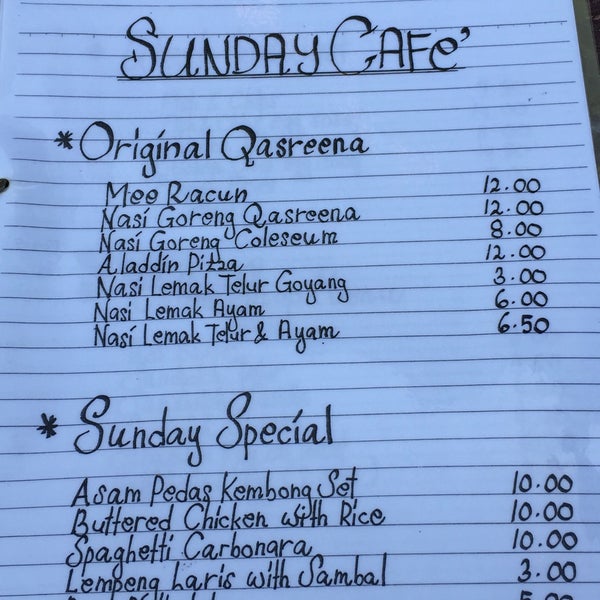 SUNDAY CAFe'
* Original Qasreena
Mee Racun 12.00
Nasi Goreng Qasreena 12.00
Nasi Goreng Coleseum 8.00
Aladdin Pizza 12.00
Nasi Lemak Telur Goyang 3.00
Nasi Lemak Ayam 6.00
Nasi Lemak Telur & Ayam 6.50
* Sunday Special
Asam Pedas Kembong Set 10.00
Buttered Chicken with Rice 10.00
Spaghetti Carbonara 10.00
Lempeng haris with Sambal 3.00
5.00